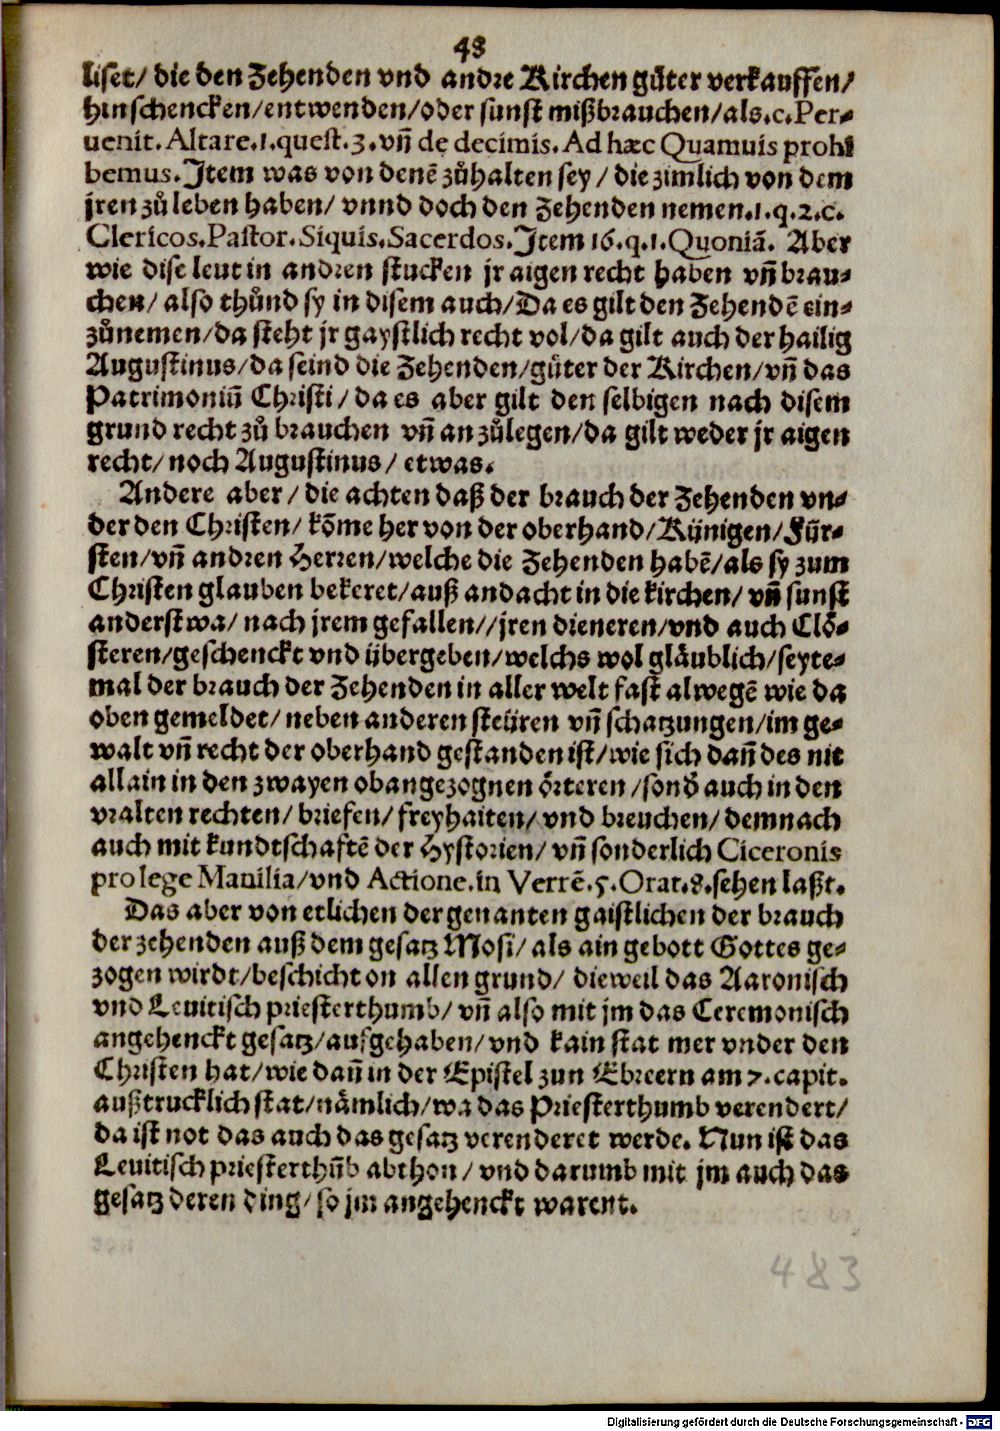 48
liset/ die den Zehenden vnd andre Kirchen gůter verkauffen/
hinschencken/entwenden/oder sunst mißbrauchen/als.c.Per-
uenit. Altare.1.quest.3.vñ de decimis. Ad hæc Quamuis prohi
bemus. Item was von denē zůhalten sey/ die zimlich von dem
jren zů leben haben/ vnnd doch den Zehenden nemen.1.q.2.c.
Clericos.Pastor.Siquis.Sacerdos.Item 16.q.1.Quoniā. Aber
wie dise leut in andren stucken jr aigen recht haben vñ brau-
chen/ also thůnd sy in disem auch/Da es gilt den Zehendē ein-
zůnemen/da steht jr gaystlich recht vol/da gilt auch der hailig
Augustinus/da seind die Zehenden/gůter der Kirchen/vñ das
Patrimoniū Christi/ da es aber gilt den selbigen nach disem
grund recht zů brauchen vñ an zůlegen/da gilt weder jr aigen
recht/ noch Augustinus/ etwas.
Andere aber/ die achten daß der brauch der Zehenden vn-
der den Christen/ kōme her von der oberhand/Künigen/Für-
sten/vñ andren Herren/welche die Zehenden habē/als sy zum
Christen glauben bekeret/auß andacht in die kirchen/ vñ sunst
anderstwa/ nach jrem gefallen//jren dieneren/vnd auch Clö-
steren/geschenckt vnd übergeben/welchs wol gläublich/seyte-
mal der brauch der Zehenden in aller welt fast alwegē wie da
oben gemeldet/ neben anderen steüren vñ schatzungen/im ge-
walt vñ recht der oberhand gestanden ist/wie sich dañ des nit
allain in den zwayen obangezognen örteren/sonď auch in den
vralten rechten/ briefen/ freyhaiten/ vnd breuchen/ demnach
auch mit kundtschaftē der Hystorien/ vñ sonderlich Ciceronis
pro lege Manilia/vnd Actione.in Verrē.5.Orat.8.sehen laßt.
Das aber von etlichen der genanten gaistlichen der brauch
der zehenden auß dem gesatz Mosi/ als ain gebott Gottes ge-
zogen wirdt/beschicht on allen grund/ dieweil das Aaronisch
vnd Leuitisch priesterthumb/ vñ also mit jm das Ceremonisch
angehenckt gesatz/aufgehaben/ vnd kain stat mer vnder den
Christen hat/wie dañ in der Epistel zun Ebreern am 7.capit.
außtrucklich stat/nämlich/wa das Priesterthumb verendert/
da ist not das auch das gesatz verenderet werde. Nun ist das
Leuitisch priesterthūb abthon/ vnd darumb mit jm auch das
gesatz deren ding/ so jm angehenckt warent.
483
Digitalisierung gefördert durch die Deutsche Forschungsgemeinschaft - DFG